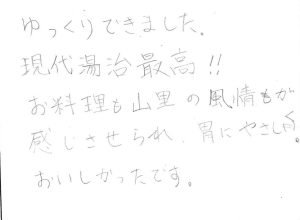 ゆっくりできました。
現代湯治最高!!
お料理も山里の風情もが
感じさせられ、胃にやさしく。
おいしかったです。